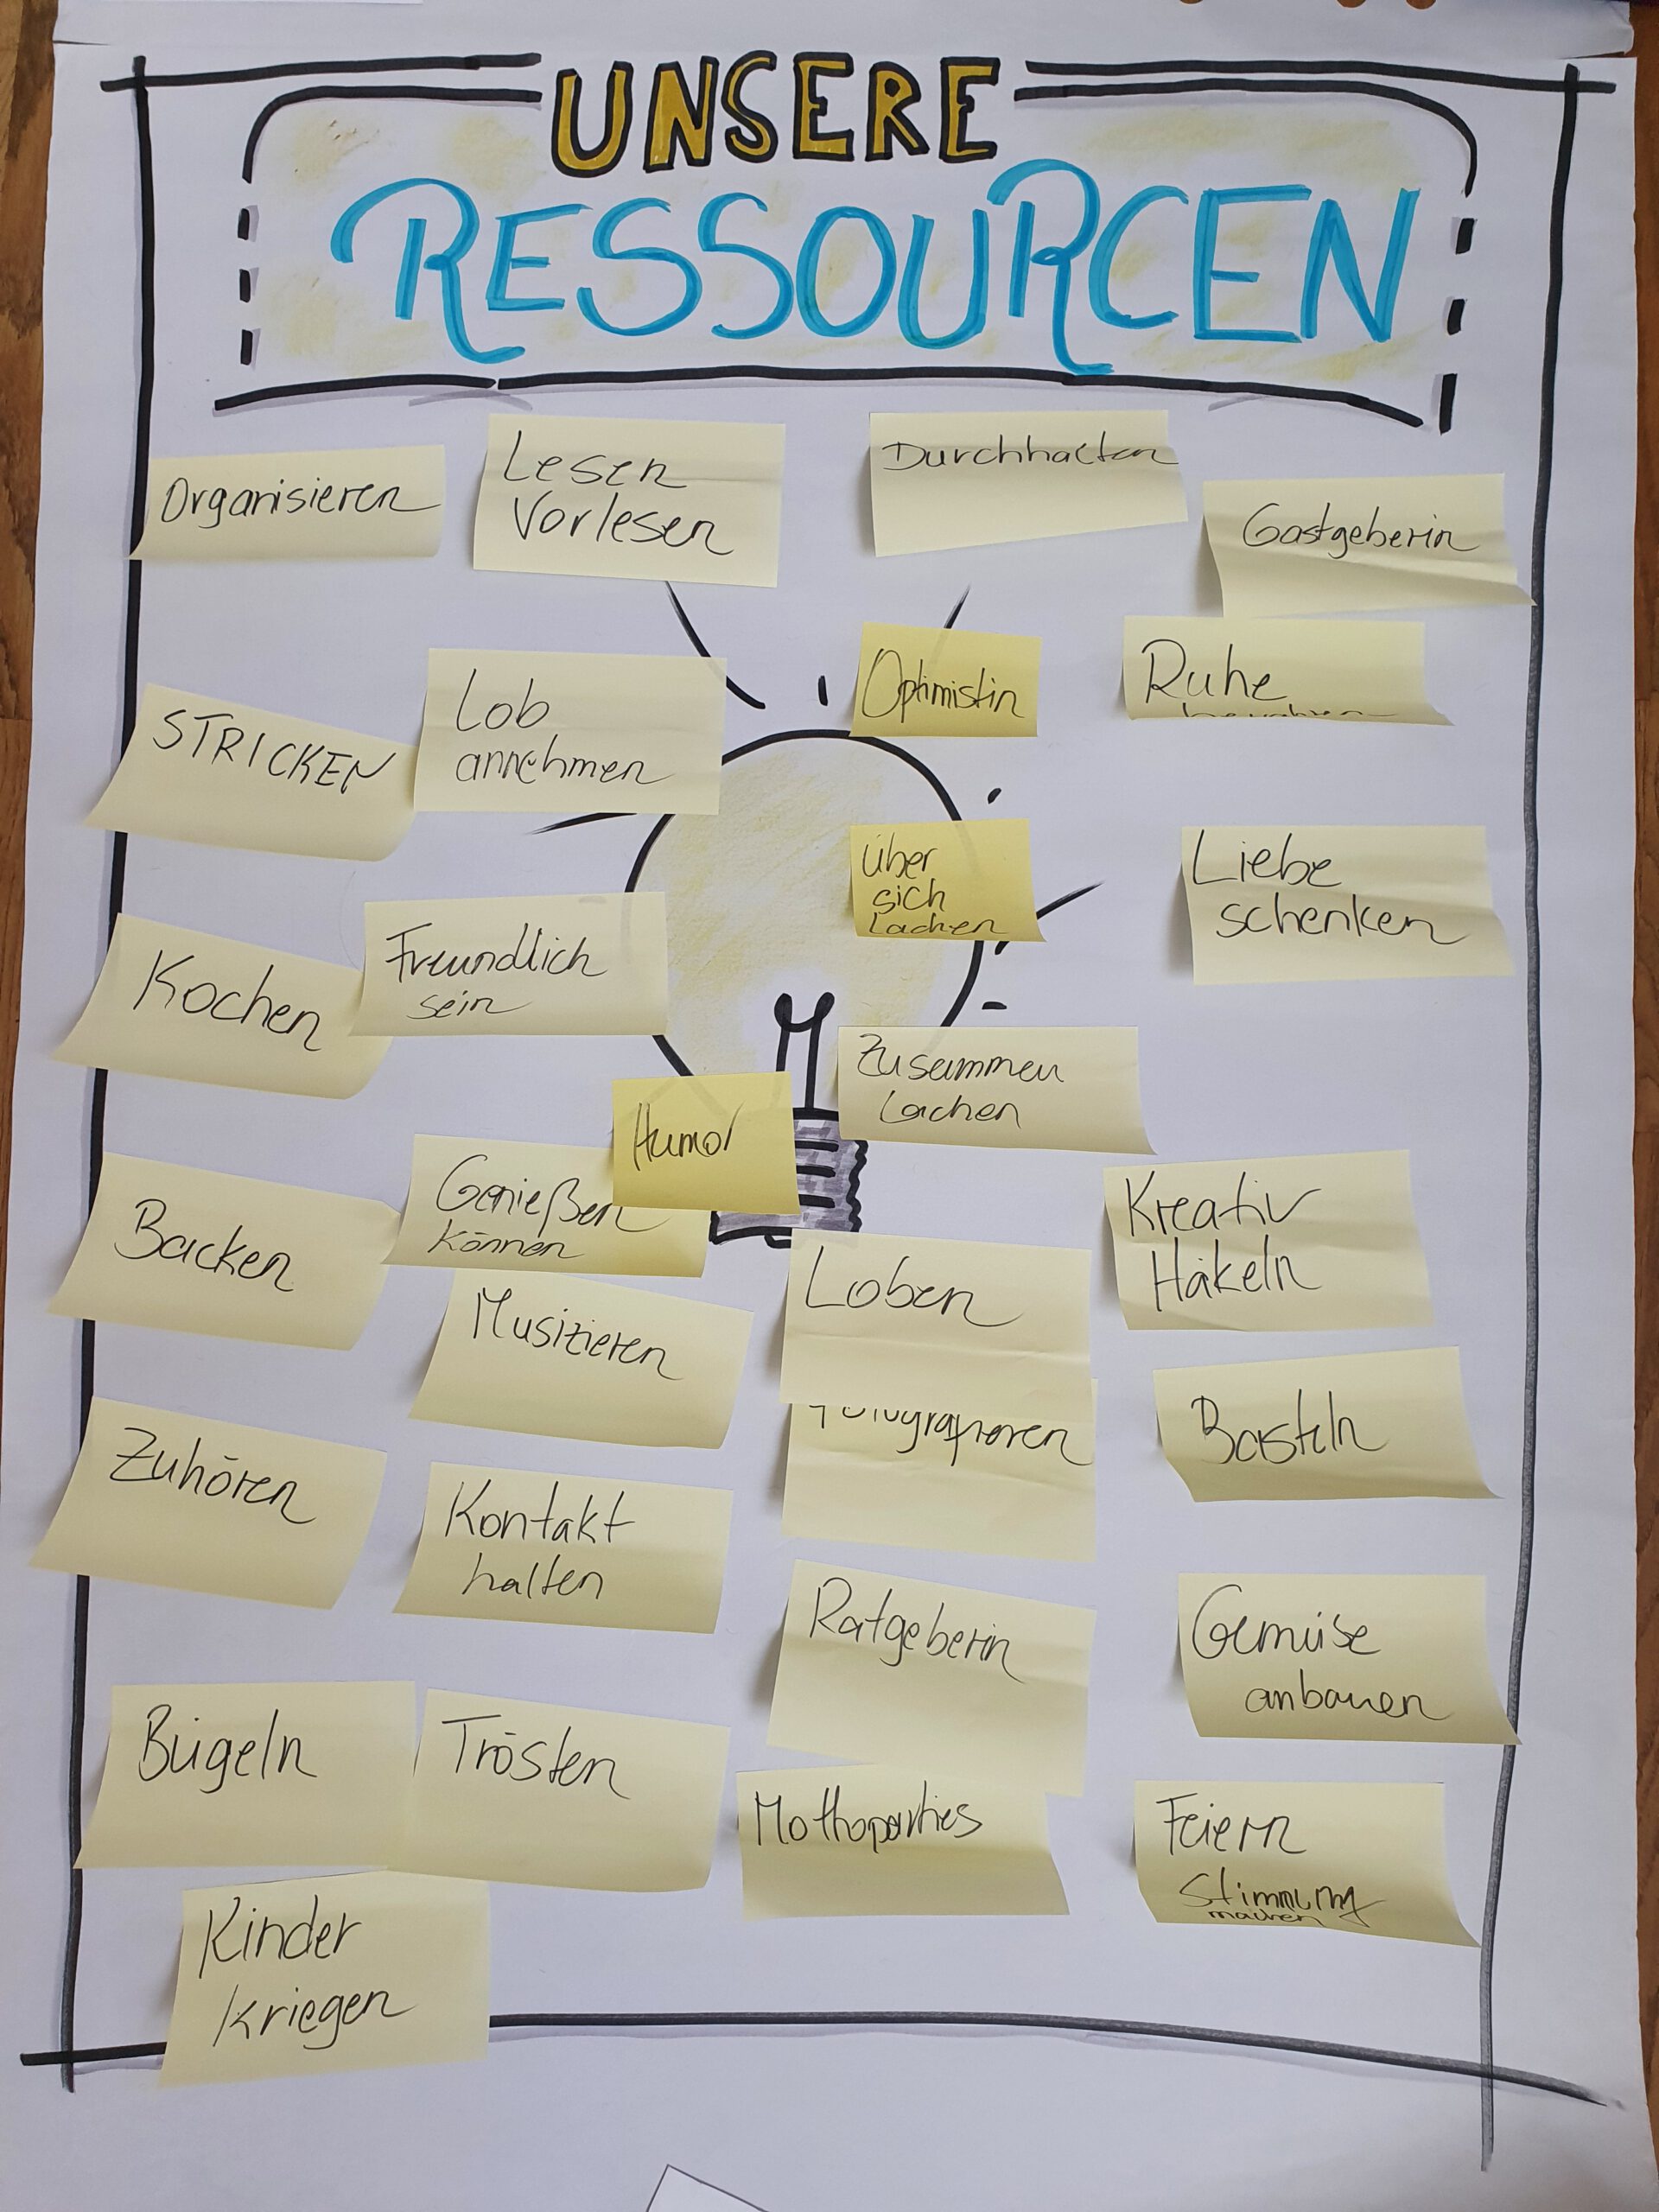 UNSERE
RESSOURCEN
Organisieren
Lesen
Vorlesen
Durchhalten
Gastgeberin
Optimistin
Ruhe
STRICKEN
Lob
annehmen
über
sich
Lachen
Liebe
schenken
Kochen
Freundlich
sein
Zusammen
Lachen
Humor
Backen
Genießen
können
Kreativ
Häkeln
Musizieren
Loben
Fotografieren
Basteln
Zuhören
Kontakt
halten
Ratgeberin
Gemüse
anbauen
Bügeln
Trösten
Mottoparties
Feiern
Stimmung
machen
Kinder
kriegen